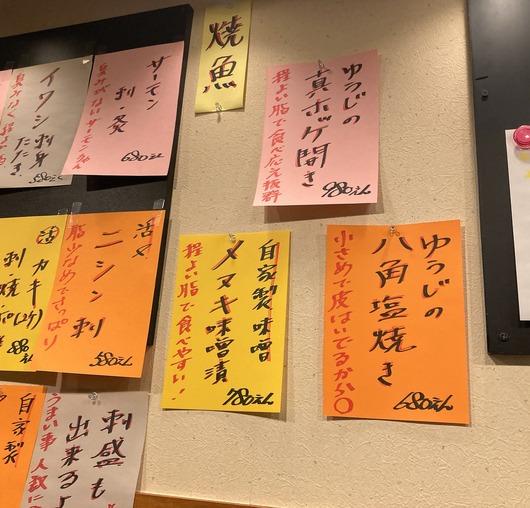 焼魚
ゆうじの
真ホッケ開き
程よい脂で食べ応え抜群
980えん
サーモン
刺 炙
680えん
イワシ刺身
たたき
580えん
ゆうじの
八角塩焼き
小さめで皮はいでるから〇
680えん
自家製味噌
メヌキ味噌漬
程よい脂で食べやすい!
780えん
活〆
ニシン刺
脂少なめでさっぱり
580えん
活カキ
刺・焼
刺盛も
出来るよ
うまい事
自家製